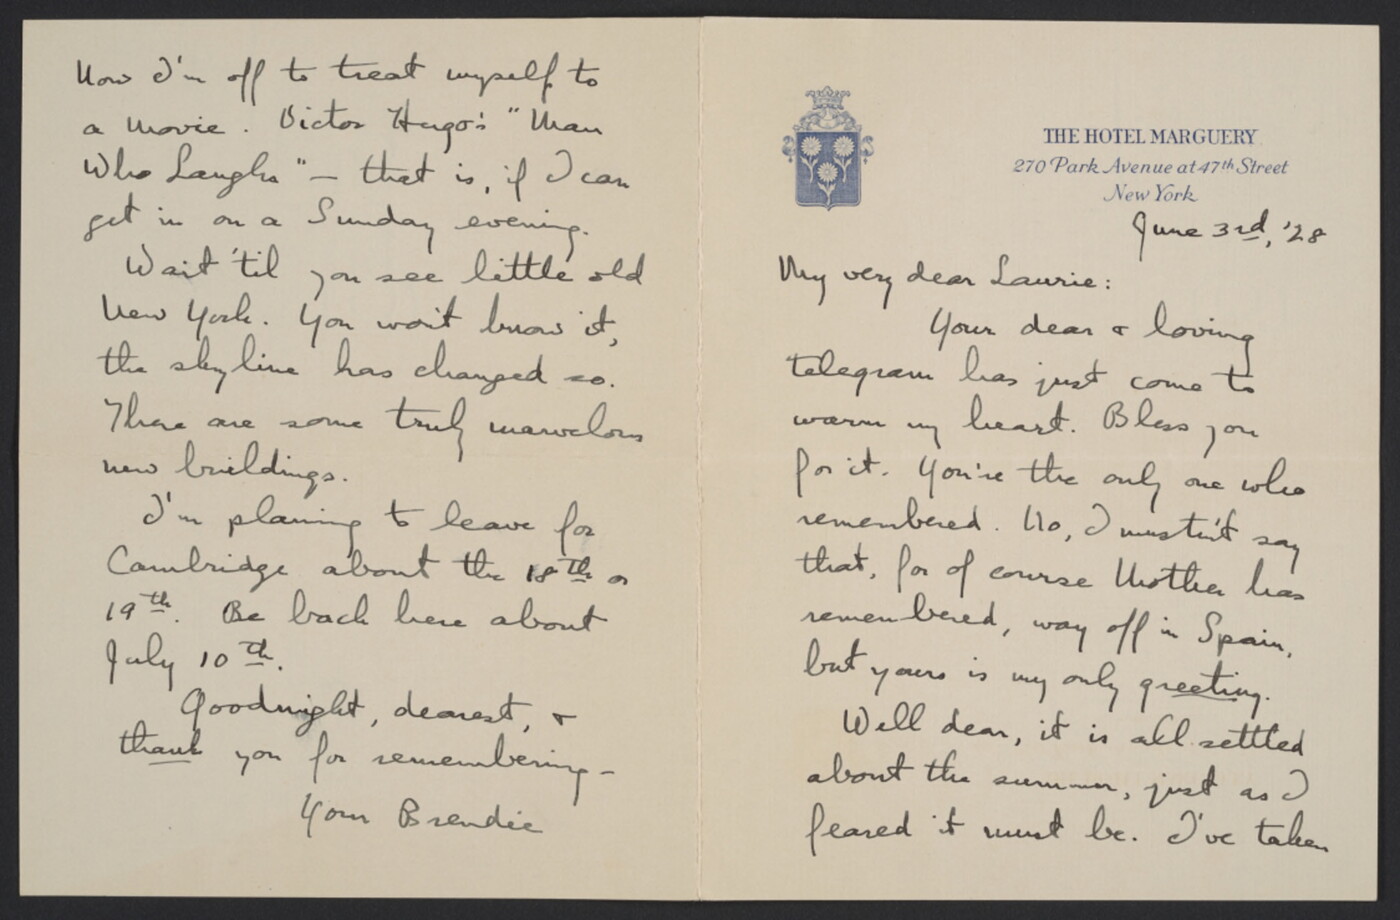 THE HOTEL MARGUERY
270 Park Avenue at 47th Street
New York
June 3rd, '28
My very dear Laurie:
Your dear & loving
telegram has just come to
warm my heart. Bless you
for it. You're the only one who
remembered. No, I mustn't say
that, for of course Mother has
remembered, way off in Spain,
but yours is my only greeting.
Well dear, it is all settled
about the summer, just as I
feared it must be. I've taken
Now I'm off to treat myself to
a movie. Victor Hugo's "Man
Who Laughs" — that is, if I can
get in on a Sunday evening.
Wait 'til you see little old
New York. You won't know it,
the skyline has changed so.
There are some truly marvelous
new buildings.
I'm planning to leave for
Cambridge about the 18th or
19th. Be back here about
July 10th.
Goodnight, dearest, &
thank you for remembering —
Your Brendie